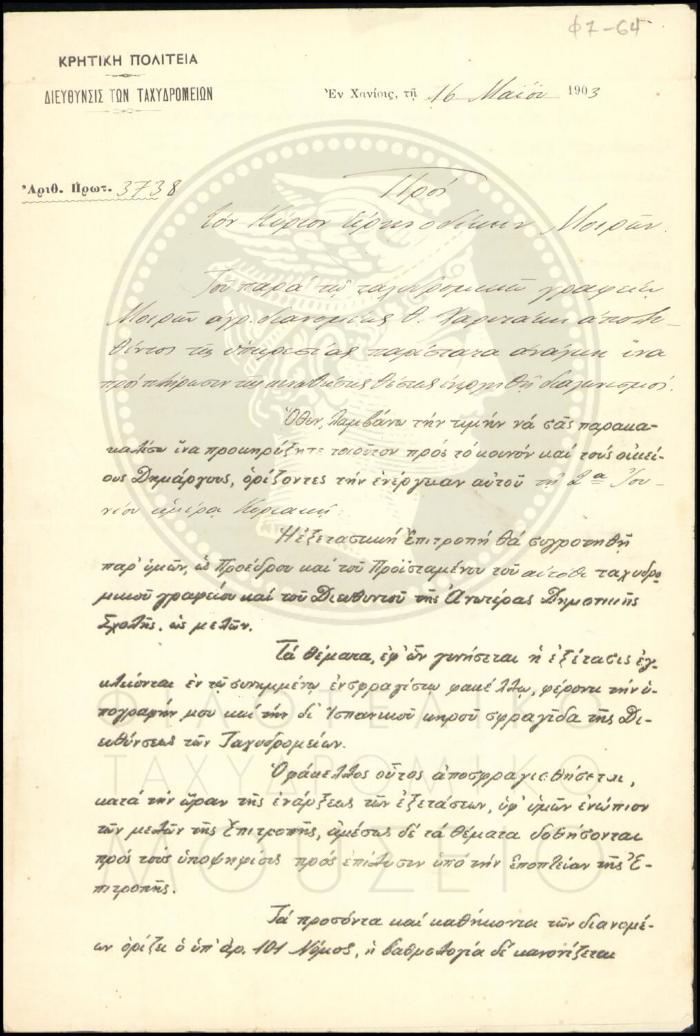 Φ7-64
ΚΡΗΤΙΚΗ ΠΟΛΙΤΕΙΑ
ΔΙΕΥΘΥΝΣΙΣ ΤΩΝ ΤΑΧΥΔΡΟΜΕΙΩΝ
Ἐν Χανίοις, τῇ 16 Μαΐου 1903
Ἀριθ. Πρωτ. 3738
Πρὸς
τὸν Κύριον Εἰρηνοδίκην Μοιρῶν.
Τοῦ παρὰ τῷ ταχυδρομικῷ γραφείῳ
Μοιρῶν ἀγρ. διανομέως Θ. ἀπολυ-
θέντος τῆς ὑπηρεσίας παρίσταται ἀνάγκη ἵνα
πρὸς πλήρωσιν τῆς κενωθείσης θέσεως ἐνεργηθῇ διαγωνισμός.
Ὅθεν, λαμβάνω τὴν τιμὴν νὰ σᾶς παρακα-
λέσω ἵνα προκηρύξητε τοιοῦτον πρὸς τὸ κοινὸν καὶ τοὺς οἰκεί-
ους Δημάρχους, ὁρίζοντες τὴν ἐνέργειαν αὐτοῦ τῇ 2ᾳ Ἰου-
νίου ἡμέρᾳ Κυριακῇ.
Ἡ ἐξεταστικὴ Ἐπιτροπὴ θὰ συγκροτηθῇ
παρ' ὑμῶν, ὡς Προέδρου καὶ τοῦ Προϊσταμένου τοῦ αὐτόθι ταχυδρο-
μικοῦ γραφείου καὶ τοῦ Διευθυντοῦ τῆς Ἀνωτέρας Δημοτικῆς
Σχολῆς, ὡς μελῶν.
Τὰ θέματα, ἐφ' ὧν γενήσεται ἡ ἐξέτασις ἐγ-
κλείονται ἐν τῷ συνημμένῳ ἐνσφραγίστῳ φακέλλῳ, φέροντι τὴν ὑ-
πογραφήν μου καὶ τὴν δι' Ἰσπανικοῦ κηροῦ σφραγῖδα τῆς Δι-
ευθύνσεως τῶν Ταχυδρομείων.
Ὁ φάκελλος οὗτος ἀποσφραγισθήσεται,
κατὰ τὴν ὥραν τῆς ἐνάρξεως τῶν ἐξετάσεων, ὑφ' ὑμῶν ἐνώπιον
τῶν μελῶν τῆς Ἐπιτροπῆς, ἀμέσως δὲ τὰ θέματα δοθήσονται
πρὸς τοὺς ὑποψηφίους πρὸς ἐπίλυσιν ὑπὸ τὴν ἐποπτείαν τῆς Ἐ-
πιτροπῆς.
Τὰ προσόντα καὶ καθήκοντα τῶν διανομέ-
ων ὁρίζει ὁ ὑπ' ἀρ. 101 Νόμος, ἡ βαθμολογία δὲ κανονίζεται
ΦΙΛΟΤΕΛΙΚΟ
ΤΑΧΥΔΡΟΜΙΚΟ
ΜΟΥΣΕΙΟ